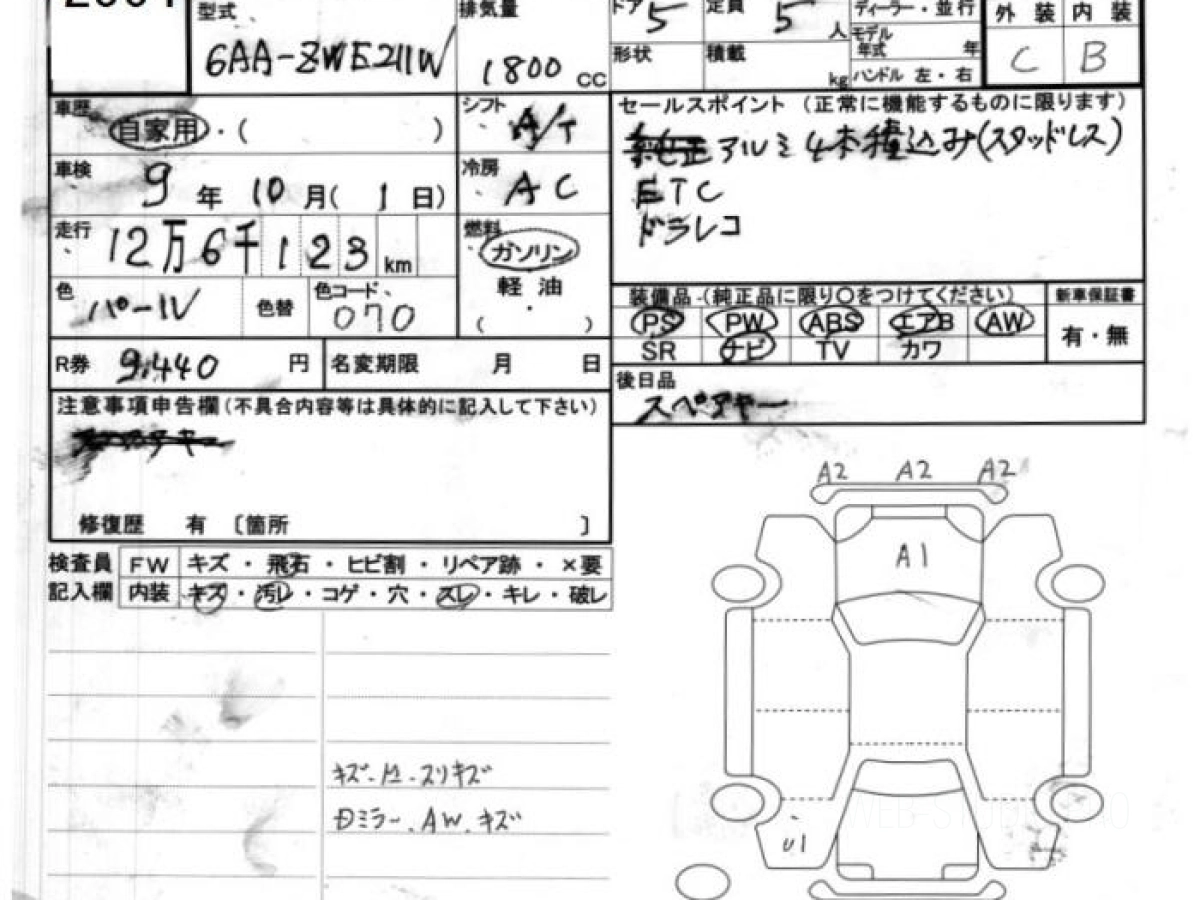 型式 排気量 ドア 5 定員 5 人 ディーラー・並行 外装 内装
6AA-ZWE211W 1800 CC 形状 積載 kg モデル年式 年 C B
ハンドル 左・右
車歴 自家用・( ) シフト A/T
セールスポイント (正常に機能するものに限ります)
アルミ4本積込み(スタッドレス)
車検 9年 10月( 1日) 冷房 AC
ETC
ドラレコ
走行 12万6千123 km 燃料 ガソリン
軽油
( )
色 パール 色替 色コード 070
装備品 (純正品に限り○をつけてください) 新車保証書
PS PW ABS エアB AW 有・無
SR ナビ TV カワ
R券 9,440 円 名変期限 月 日
後日品
スペアキー
注意事項申告欄(不具合内容等は具体的に記入して下さい)
修復歴 有 〔箇所 〕
検査員 FW キズ・飛石・ヒビ割・リペア跡・×要
記入欄 内装 キズ・汚レ・コゲ・穴・スレ・キレ・破レ
A2 A2 A2
A1
スリキズ
ミラー、AW、キズ
U1